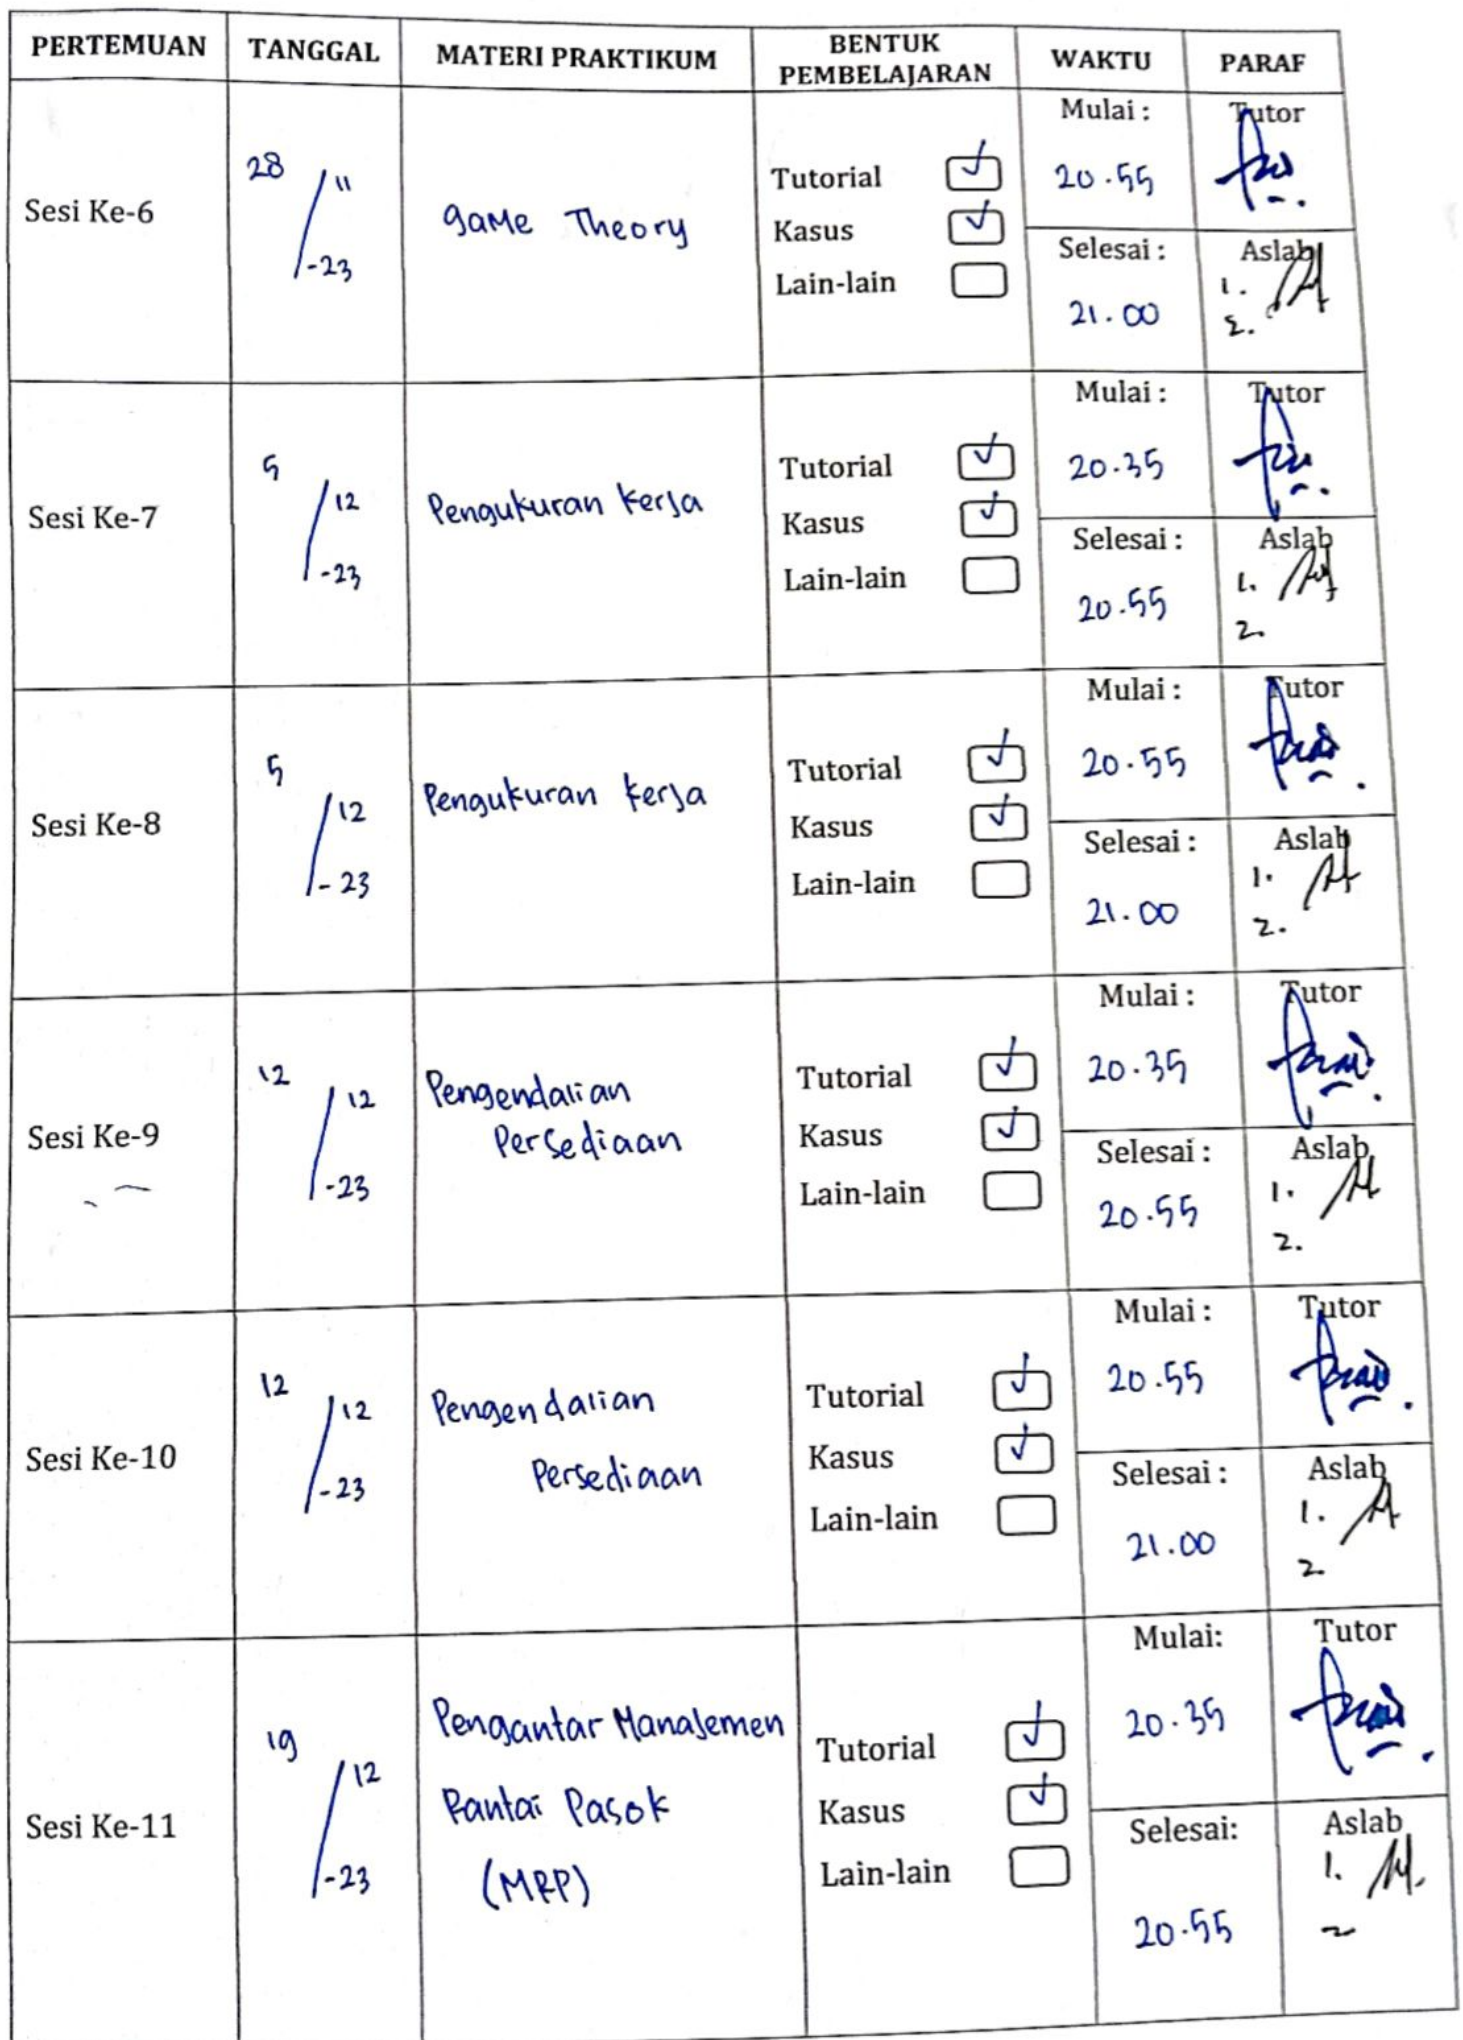 PERTEMUAN TANGGAL MATERI PRAKTIKUM BENTUK PEMBELAJARAN WAKTU PARAF
Sesi Ke-6
28/11-23
game Theory
Tutorial
Kasus
Lain-lain
Mulai :
20.55
Selesai :
21.00
Tutor
Aslab
1.
2.
Sesi Ke-7
5/12-23
Pengukuran kerja
Tutorial
Kasus
Lain-lain
Mulai :
20.35
Selesai :
20.55
Tutor
Aslab
1.
2.
Sesi Ke-8
5/12-23
Pengukuran kerja
Tutorial
Kasus
Lain-lain
Mulai :
20.55
Selesai :
21.00
Tutor
Aslab
1.
2.
Sesi Ke-9
12/12-23
Pengendalian
Persediaan
Tutorial
Kasus
Lain-lain
Mulai :
20.35
Selesai :
20.55
Tutor
Aslab
1.
2.
Sesi Ke-10
12/12-23
Pengendalian
Persediaan
Tutorial
Kasus
Lain-lain
Mulai :
20.55
Selesai :
21.00
Tutor
Aslab
1.
2.
Sesi Ke-11
19/12-23
Pengantar Manajemen
Rantai Pasok
(MRP)
Tutorial
Kasus
Lain-lain
Mulai:
20.35
Selesai:
20.55
Tutor
Aslab
1.
2